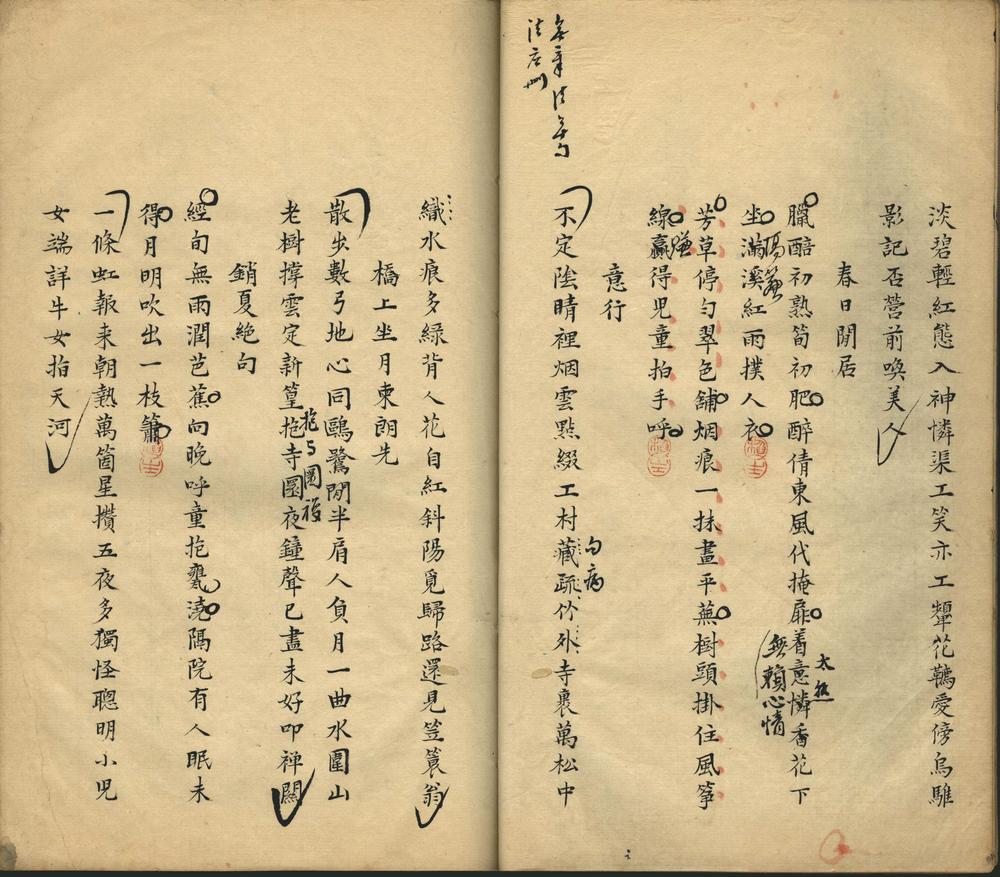 淡碧輕紅態入神憐渠工笑亦工顰花韉愛傍烏騅
影記否營前喚美人
春日閒居
臘醅初熟筍初肥醉倩東風代掩扉着意憐香花下
太執
無賴心情
坐滿溪紅雨撲人衣
芳草停勻翠色舖烟痕一抹畫平蕪樹頭掛住風箏
線贏得兒童拍手呼
意行
不定陰晴裡烟雲點綴工村藏疏竹外寺裹萬松中
句病
織水痕多綠背人花自紅斜陽覓歸路還見笠簑翁
橋上坐月柬朗先
散步數弓地心同鷗鷺閒半肩人負月一曲水圍山
老樹撐雲定新篁抱寺圜夜鐘聲已盡未好叩禪關
抱与圜複
銷夏絕句
經旬無雨潤芭蕉向晚呼童抱甕澆隔院有人眠未
得月明吹出一枝簫
一條虹報来朝熱萬箇星攢五夜多獨怪聰明小兒
女端詳牛女指天河